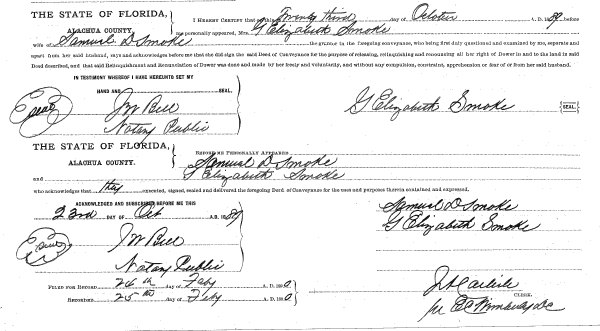 THE STATE OF FLORIDA,
ALACHUA COUNTY.
I HEREBY CERTIFY that on this Twenty third day of October A. D. 1889 before
me personally appeared, Mrs. G Elizabeth Smoke
wife of Samuel D Smoke the grantor in the foregoing conveyance, who being first duly questioned and examined by me, separate and
apart from her said husband, says and acknowledges before me that she did sign the said Deed of Conveyance for the purpose of releasing, relinquishing and renouncing all her right of Dower in and to the land in said
Deed described, and that said Relinquishment and Renunciation of Dower was done and made by her freely and voluntarily, and without any compulsion, constraint, apprehension or fear of or from her said husband.
IN TESTIMONY WHEREOF I HAVE HEREUNTO SET MY
HAND AND SEAL,
Seal
J W Bell
Notary Public
G Elizabeth Smoke SEAL.
THE STATE OF FLORIDA,
ALACHUA COUNTY.
BEFORE ME PERSONALLY APPEARED
Samuel D Smoke
and G Elizabeth Smoke
who acknowledges that they executed, signed, sealed and delivered the foregoing Deed of Conveyance for the uses and purposes therein contained and expressed.
ACKNOWLEDGED AND SUBSCRIBED BEFORE ME THIS
23rd DAY OF Oct A. D. 1889
Samuel D Smoke
G Elizabeth Smoke
Seal
J W Bell
Notary Public
FILED FOR RECORD 24th day of Feby A. D. 1890
RECORDED 25th day of Feby A. D. 1890
J A Carlisle
CLERK.